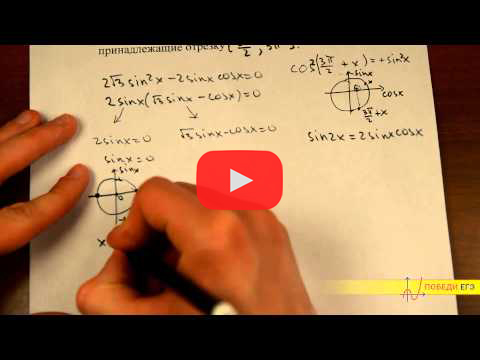 принадлежащие отрезку
2√3 sin²x - 2sinx cosx = 0
2sinx(√3 sinx - cosx) = 0
2sinx = 0 √3 sinx - cosx = 0
sinx = 0
sinx
0
x
cos²(3π/2 + x) = + sin²x
sinx
x
cosx
3π/2 + x
sin2x = 2sinx cosx
ПОБЕДИ ЕГЭ